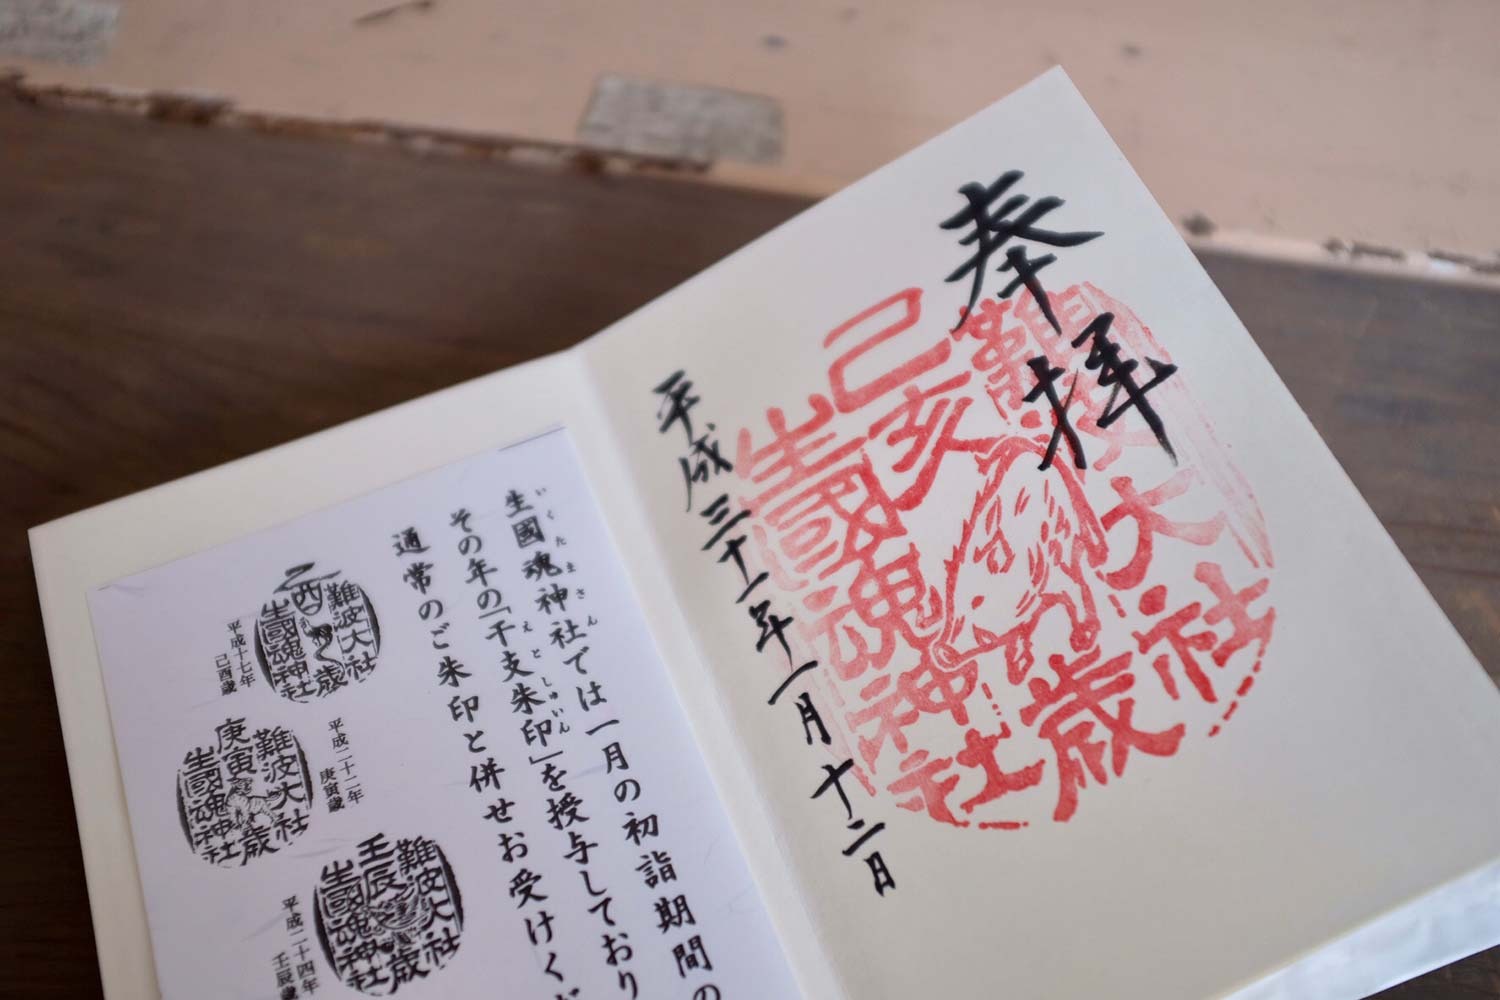 奉拝
難波大社
己亥
歳
生國魂神社
平成三十一年一月十二日
生國魂神社では一月の初詣期間の
いくたまさん
その年の「干支朱印」を授与しており
えとしゅいん
通常のご朱印と併せお受けくだ
難波大社
己酉
歳
生國魂神社
平成十七年
己酉歳
難波大社
庚寅
歳
生國魂神社
平成二十二年
庚寅歳
難波大社
壬辰
歳
生國魂神社
平成二十四年
壬辰歳